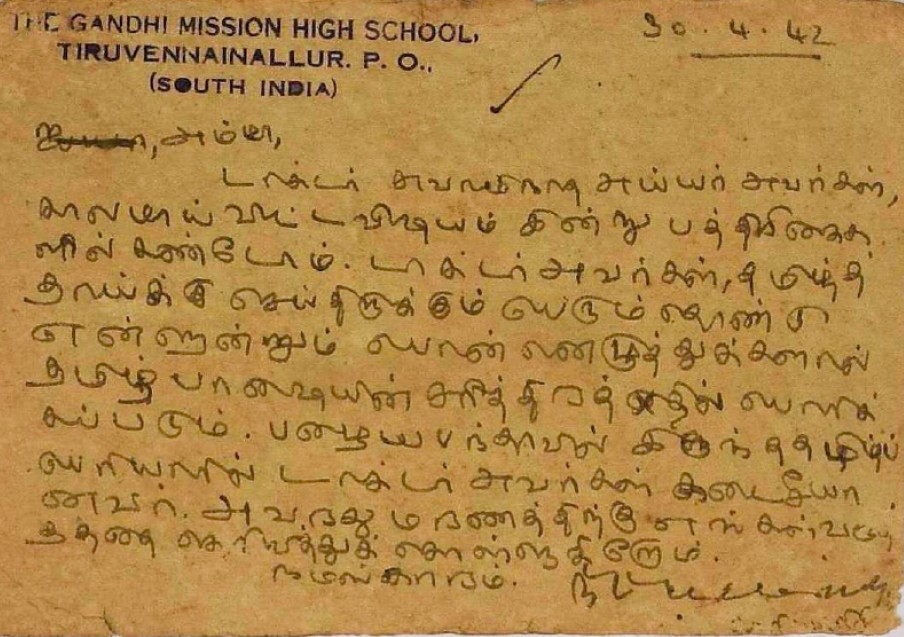 THE GANDHI MISSION HIGH SCHOOL,
TIRUVENNAINALLUR. P. O.,
(SOUTH INDIA)
30.4.42
ஐயா, அம்மா,
டாக்டர் சுவாமிநாத அய்யர் அவர்கள்,
காலமாய்விட்ட விஷயம் இன்று பத்திரிகைக
ளில் கண்டோம். டாக்டர் அவர்கள், தமிழ்த்
தாய்க்கு செய்திருக்கும் பெரும் தொண்டு
என்றென்றும் பொன் எழுத்துக்களால்
தமிழ் பாஷையின் சரித்திரத்தில் பொறிக்
கப்படும். பழைய பந்தாவில் இருந்த தமிழ்ப்
பெரியாரில் டாக்டர் அவர்கள் கடைசியா
னவர். அவரது மரணத்திற்கு எங்கள் வருத்
தத்தை தெரிவித்துக் கொள்ளுகிறோம்.
நமஸ்காரம்.